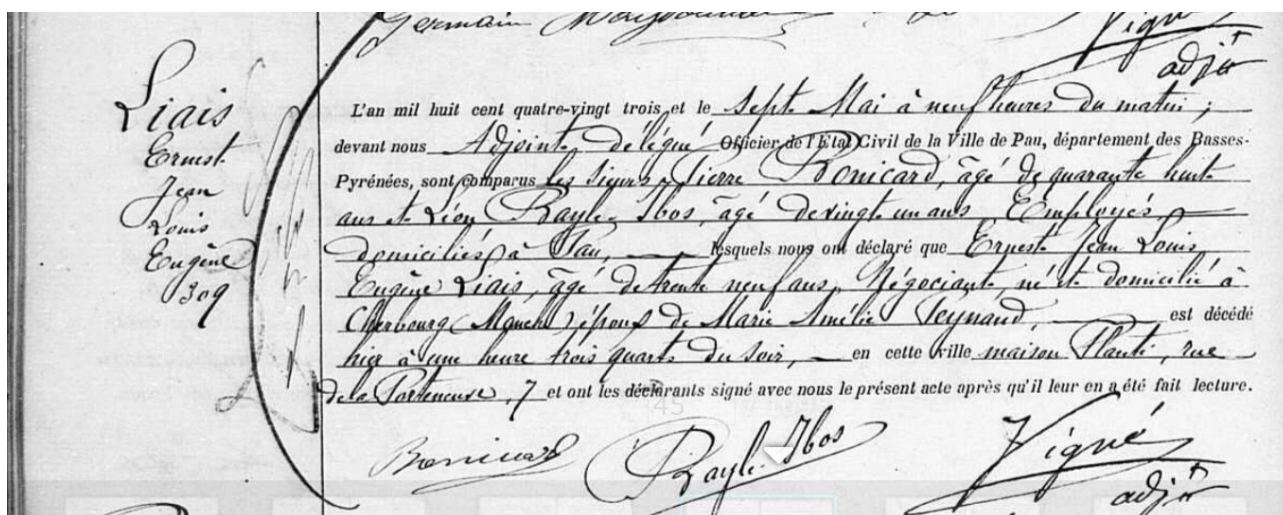 Germain
Vigné
adjt
Liais
Ernest
Jean
Louis
Eugène
309
L'an mil huit cent quatre-vingt trois, et le Sept Mai à neuf heures du matin ;
devant nous Adjoint Délégué Officier de l'Etat Civil de la Ville de Pau, département des Basses-
Pyrénées, sont comparus les sieurs Pierre Bonicard, âgé de quarante huit
ans et Léon Rayle-Ibos, âgé de vingt un ans, Employés,
domiciliés à Pau, lesquels nous ont déclaré que Ernest Jean Louis
Eugène Liais, âgé de trente neuf ans, Négociant, né et domicilié à
Cherbourg (Manche) époux de Marie Amélie Teynaud, est décédé
hier à une heure trois quarts du soir, en cette ville maison Planté, rue
de la Porteneuve, 7 et ont les déclarants signé avec nous le présent acte après qu'il leur en a été fait lecture.
45
Bonicard Rayle-Ibos Vigné
adjt